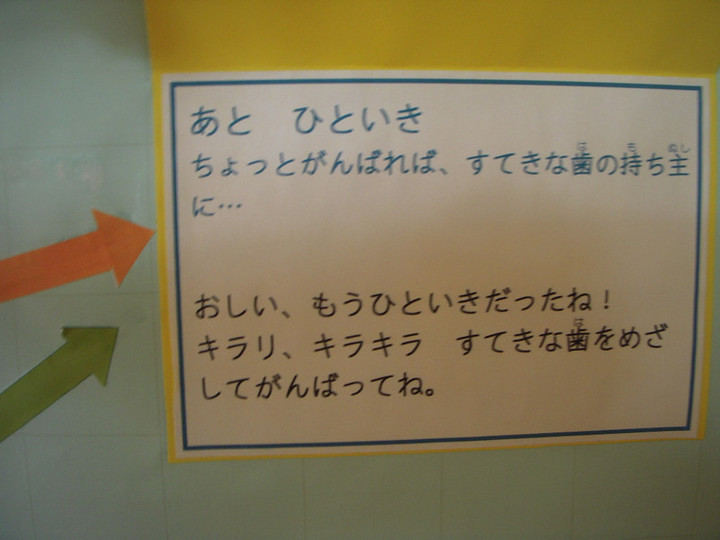 あと　ひといき
ちょっとがんばれば、すてきな歯の持ち主
に…
おしい、もうひといきだったね！
キラリ、キラキラ　すてきな歯をめざ
してがんばってね。